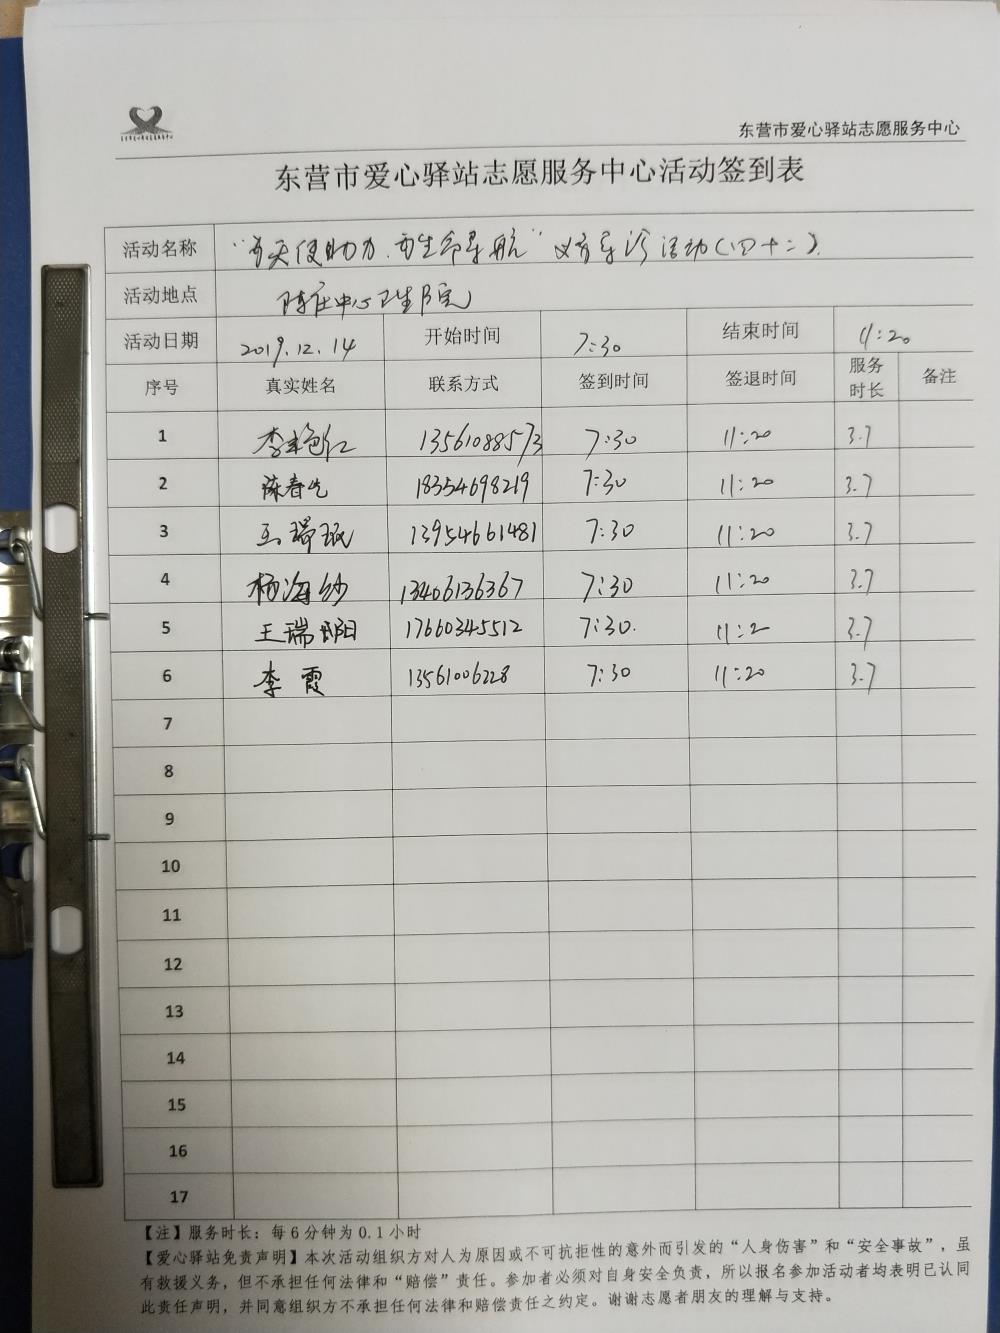 东营市爱心驿站志愿服务中心
东营市爱心驿站志愿服务中心活动签到表
活动名称 “为天使助力 为生命导航”义务导诊活动(四十二)
活动地点 陈庄中心卫生院
活动日期 2019.12.14 开始时间 7:30 结束时间 11:20
序号 真实姓名 联系方式 签到时间 签退时间 服务时长 备注
1 李艳红 13561088573 7:30 11:20 3.7
2 陈春 18354698219 7:30 11:20 3.7
3 王瑞珉 13954661481 7:30 11:20 3.7
4 杨海纱 13406136367 7:30 11:20 3.7
5 王瑞阳 17660345512 7:30. 11:2 3.7
6 李霞 13561006228 7:30 11:20 3.7
7
8
9
10
11
12
13
14
15
16
17
【注】服务时长：每6分钟为0.1小时
【爱心驿站免责声明】本次活动组织方对人为原因或不可抗拒性的意外而引发的“人身伤害”和“安全事故”，虽
有救援义务，但不承担任何法律和“赔偿”责任。参加者必须对自身安全负责，所以报名参加活动者均表明已认同
此责任声明，并同意组织方不承担任何法律和赔偿责任之约定。谢谢志愿者朋友的理解与支持。